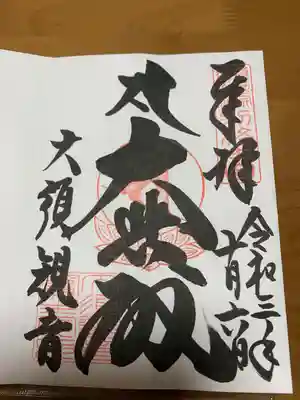 奉拝
令和三年
十月六日
大悲殿
大須観音